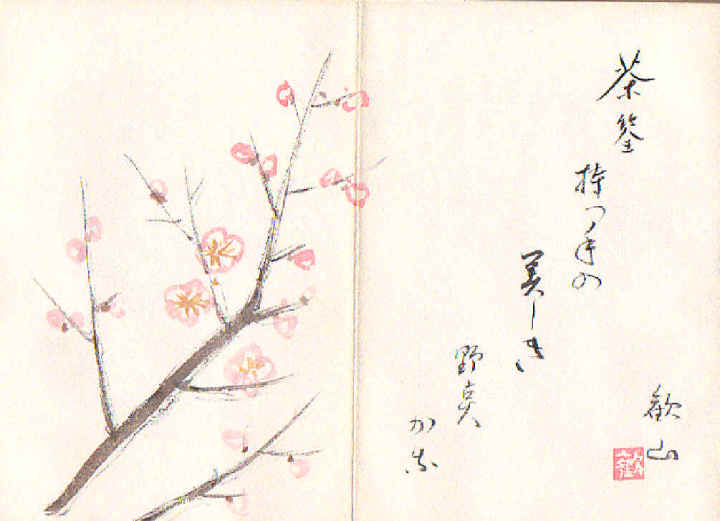 茶筌
持つ手の
美しき
野点
かな
歓山